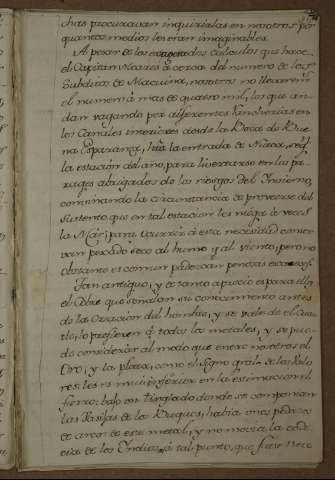 chas procuravan inquirirlas en nosotros por
quantos medios les eran imaginables.
A pesar de los exagerados calculos que hace
el Capitan Meares à cerca del numero de los
Subditos de Macuina, nosotros no llevaremos
el numero à mas de quatro mil, los que an-
dan vagando por diferentes Rancherias en
los Canales interiores desde la Boca de Bue-
na Esperanza, hta la entrada de Nucas, seg.n
la estación del año, para libertarse en los pa-
rages abrigados de los riesgos del Invierno,
combinando la circunstancia de proveerse del
sustento que en tal estacion les niega à veces
la Mar; para ocurrir à esta necesidad conser-
van pescado seco al humo y al viento, pero no
obstante es comun padezcan penosas escaseces.
Tan antiguo, y de tanto aprecio es para ellos
el Cobre que señalan su conocimiento antes
de la Creacion del hombre, y se vale de el Cua-
tle, lo prefieren à todos los metales, y se pue-
de considerar al modo que entre nosotros el
Oro, y la plata, como el signo gral de los Valo-
res: les es mui inferior en la estimacion el
fierro: bajo un Tinglado donde se componian
las Vasijas de los Buques, había unos pedazos
de arcos de este metal, y no movía la cod-
cia de los Indios à tal punto, que fuese nece